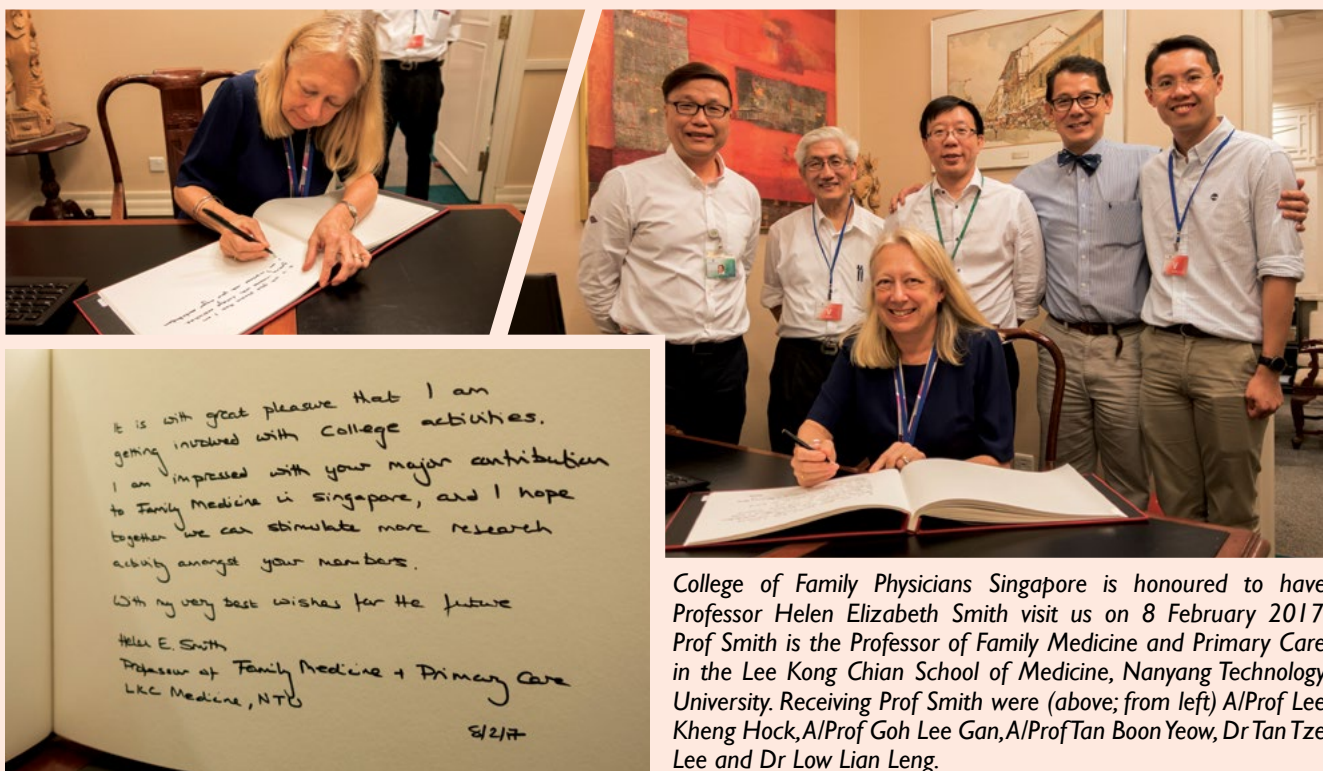 It is with great pleasure that I am
getting involved with College activities.
I am impressed with your major contribution
to Family Medicine in Singapore, and I hope
together we can stimulate more research
activity amongst your members.
With my very best wishes for the future
Helen E. Smith
Professor of Family Medicine + Primary Care
LKC Medicine, NTU
8/2/17
College of Family Physicians Singapore is honoured to have
Professor Helen Elizabeth Smith visit us on 8 February 2017
Prof Smith is the Professor of Family Medicine and Primary Care
in the Lee Kong Chian School of Medicine, Nanyang Technology
University. Receiving Prof Smith were (above; from left) A/Prof Lee
Kheng Hock, A/Prof Goh Lee Gan, A/Prof Tan Boon Yeow, Dr Tan Tze
Lee and Dr Low Lian Leng.